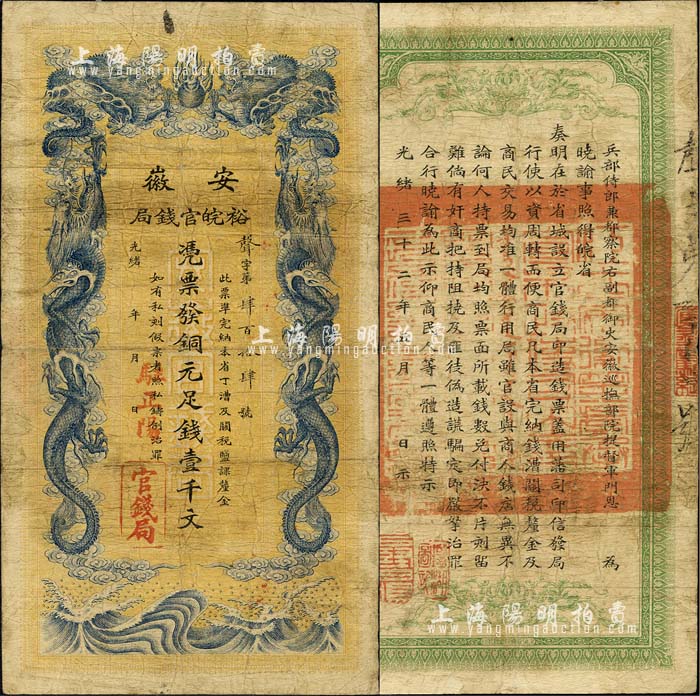 上海陽明拍賣
www.yangmingauction.com
安徽
裕皖官錢局
憑票發銅元足錢壹千文
聲字第肆百肆號
此票準完納本省丁漕及關稅鹽課釐金
如有私刻假票者照私鑄例治罪
光緒 年 月 日
官錢局
上海陽明拍賣
www.yangmingauction.com
兵部侍郎兼都察院右副都御史安徽巡撫部院提督軍門恩 為
曉諭事照得皖省
奏明在於省城設立官錢局印造錢票蓋用藩司印信發局
行使以資周轉而便商民凡本省完納錢漕關稅釐金及
商民交易均準一體行用局雖官設與商人錢店無異不
論何人持票到局均照票面所載錢數兌付決不片刻留
難倘有奸商把持阻撓及匪徒偽造誆騙定即嚴拏治罪
合行曉諭為此示仰商民人等一體遵照特示
光緒三十二年 月 日示
上海陽明拍賣
www.yangmingauction.com
上海陽明拍賣
www.yangmingauction.com